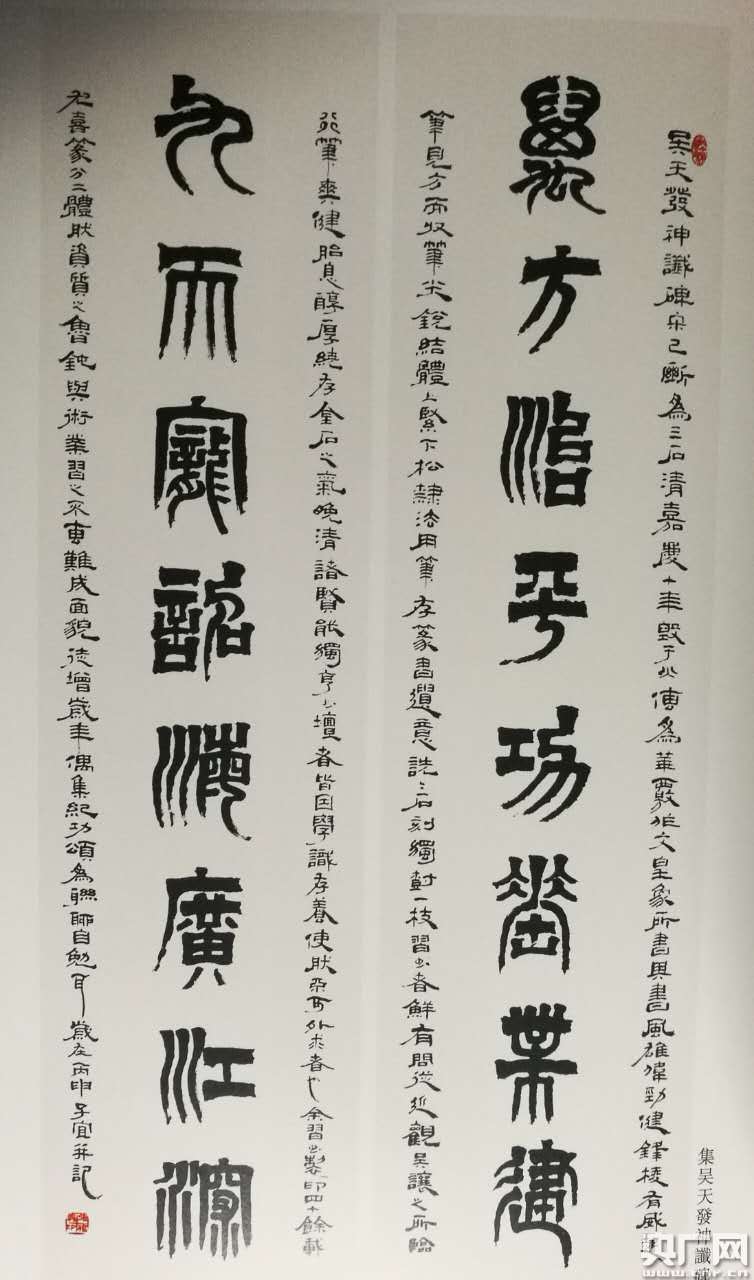 吴天發神讖碑宋已斷為三石清嘉慶十年毀于火傳為華覈作文皇象所書其書風雄偉勁健鋒棱有威起
萬方治平功崇業建
筆見方而收筆尖銳結體上緊下松隸法用筆存篆書遺意詵詵石刻獨樹一枝習書者鮮有問從近觀吳讓之所臨
行筆爽健胎息醇厚純存金石之氣晚清諸賢能獨享書壇者皆因學識存養使然不可外求者也余習書製印四十餘載
而寵詔海廣江深
尤喜篆分二體然資質之魯鈍與術業習之不專難成面貌徒增歲年偶集紀功頌為聯聊自勉耳 歲在丙申子宜并記
集吴天發神讖碑
央广网
www.cnr.cn